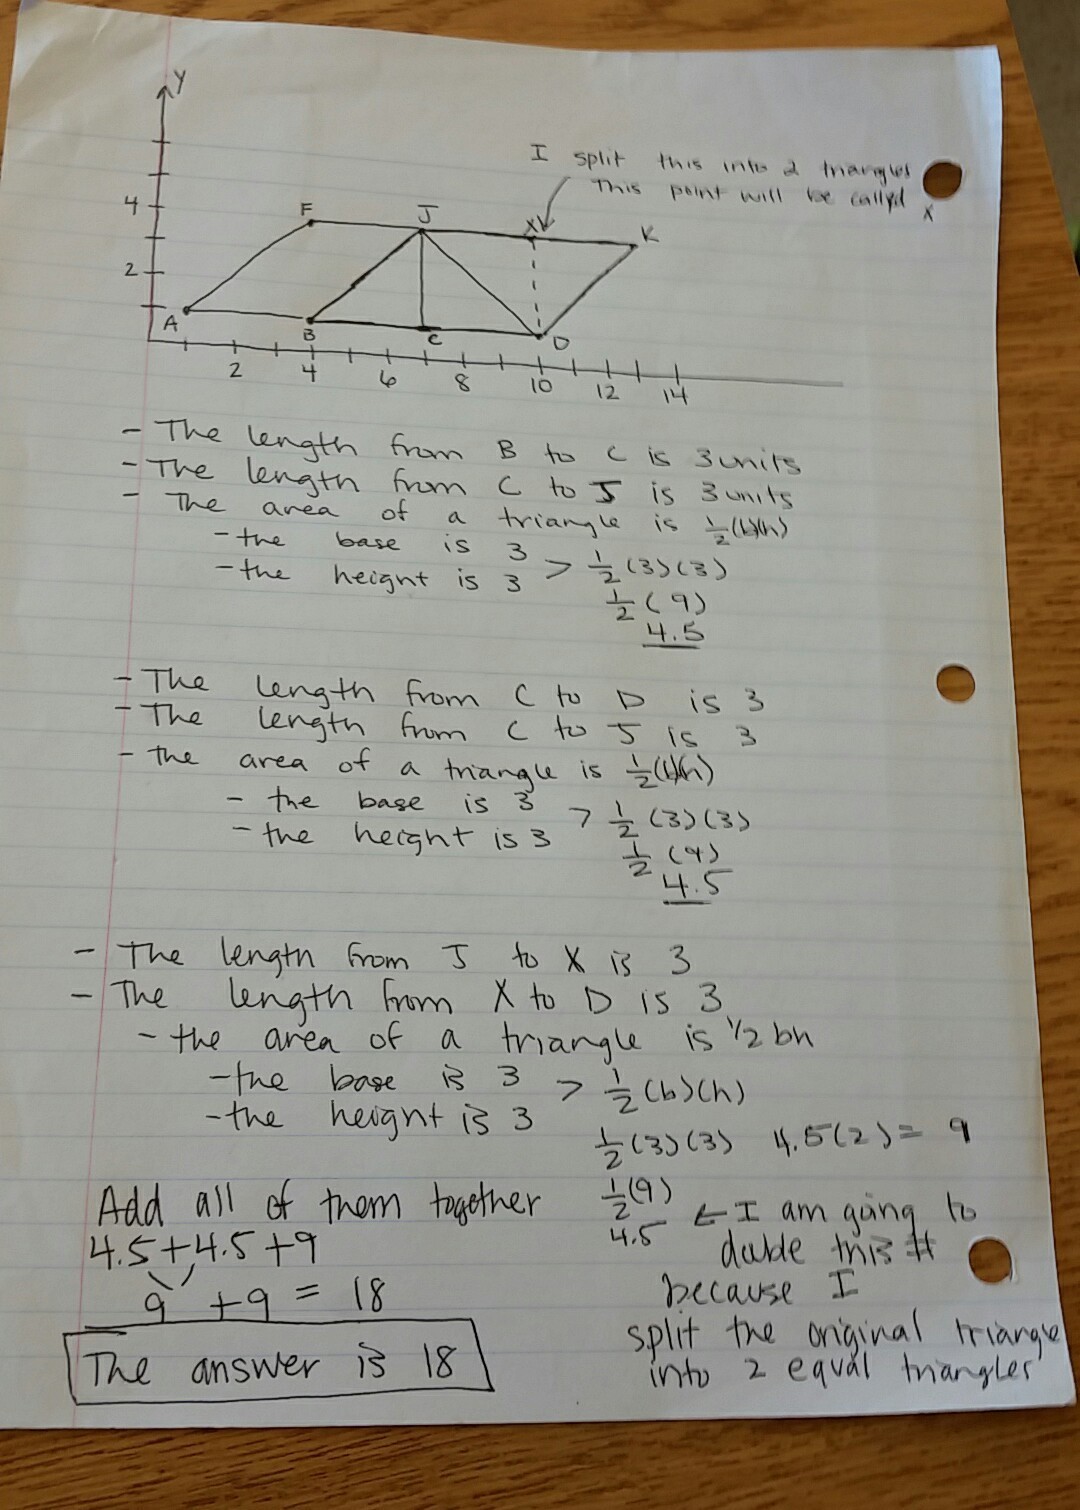 Y
I split this into 2 triangles
This point will be called x
4
F
J
X
K
2
A
B
C
D
2 4 6 8 10 12 14
- The length from B to C is 3 units
- The length from C to J is 3 units
- The area of a triangle is 1/2 (b)(h)
- the base is 3
- the height is 3 > 1/2 (3)(3)
1/2 (9)
4.5
- The length from C to D is 3
- The length from C to J is 3
- the area of a triangle is 1/2 (b)(h)
- the base is 3
- the height is 3 > 1/2 (3)(3)
1/2 (9)
4.5
- The length from J to X is 3
- The length from X to D is 3
- the area of a triangle is 1/2 bh
- the base is 3
- the height is 3 > 1/2 (b)(h)
1/2 (3)(3) 4.5(2) = 9
1/2 (9)
4.5 ← I am going to
double this #
because I
split the original triangle
into 2 equal triangles
Add all of them together
4.5+4.5+9
9 +9 = 18
The answer is 18